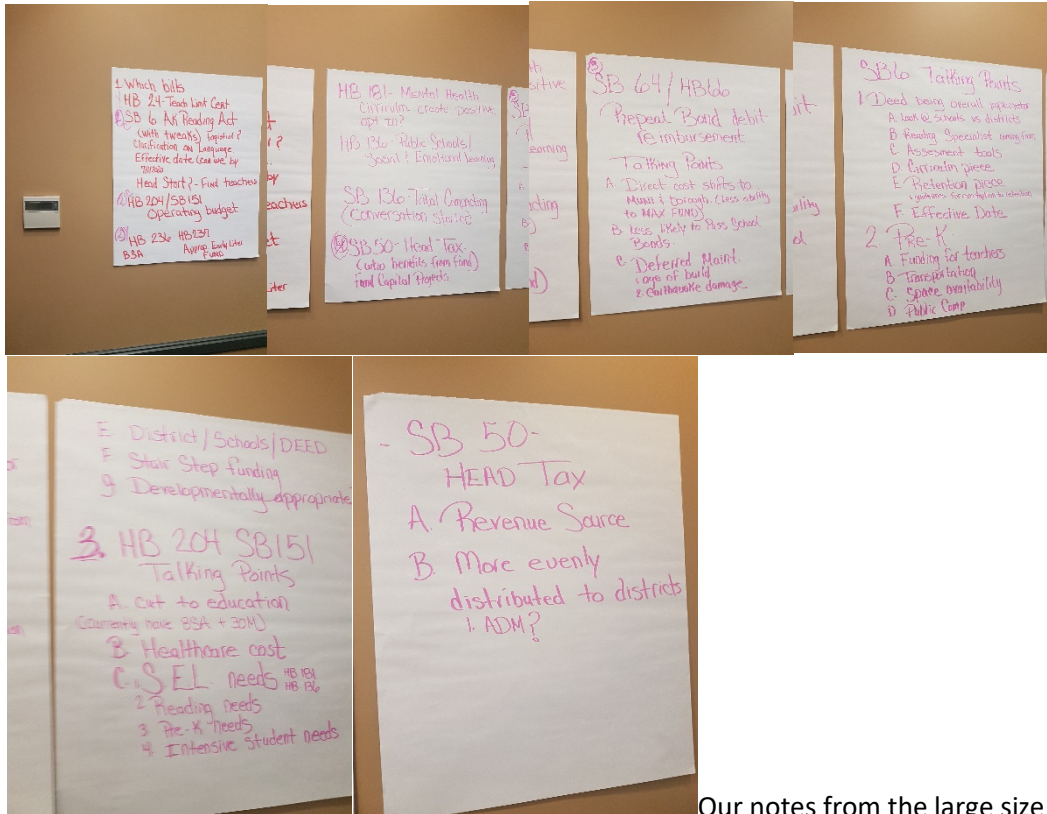 1 Which bills
HB 24- Teach Limt Cert
SB 6 AK Reading Act
(with tweaks) Logistical?
Clarification on Language
Effective date (can we) by
Head Start? - Find teachers
HB 204/SB151
Operating budget
HB 236 HB 237
BSA Approp Early Liter
Fund
HB 181- Mental Health
Curriculm create positive,
opt in?
HB 136- Public Schools/
Social & Emotional Learning
SB 136- Tribal Compacting
(conversation started)
SB 50- Head Tax
(who benefits from fund)
Fund Capital Projects
3
SB 64/HB66
Repeal Bond debit
reimbursement
Talking Points
A. Direct cost shifts to
Muni & borough (less ability
to MAX FUND)
B. Less likely to Pass School
Bonds.
C. Deferred Maint.
1 age of build
2. Earthquake damage
SB6 Talking Points
1 Deed being overall
A. Look @ schools vs districts
B. Reading Specialist
C. Assesment tools
D. Curriculm piece
E. Retention piece
F. Effective Date
2 Pre-K
A. Funding for teachers
B Transportation
C. Space availability
D. Public Comp
E District/Schools/DEED
F Stair Step funding
g Developmentally appropriate
3. HB 204 SB151
Talking Points
A. cut to education
(currently have BSA + 30M)
B. Healthcare cost
C. S.E.L. needs HB 181
HB 136
2 Reading needs
3 Pre-K needs
4. Intensive student needs
- SB 50-
HEAD Tax
A. Revenue Source
B. More evenly
distributed to districts
1. ADM?
Our notes from the large size